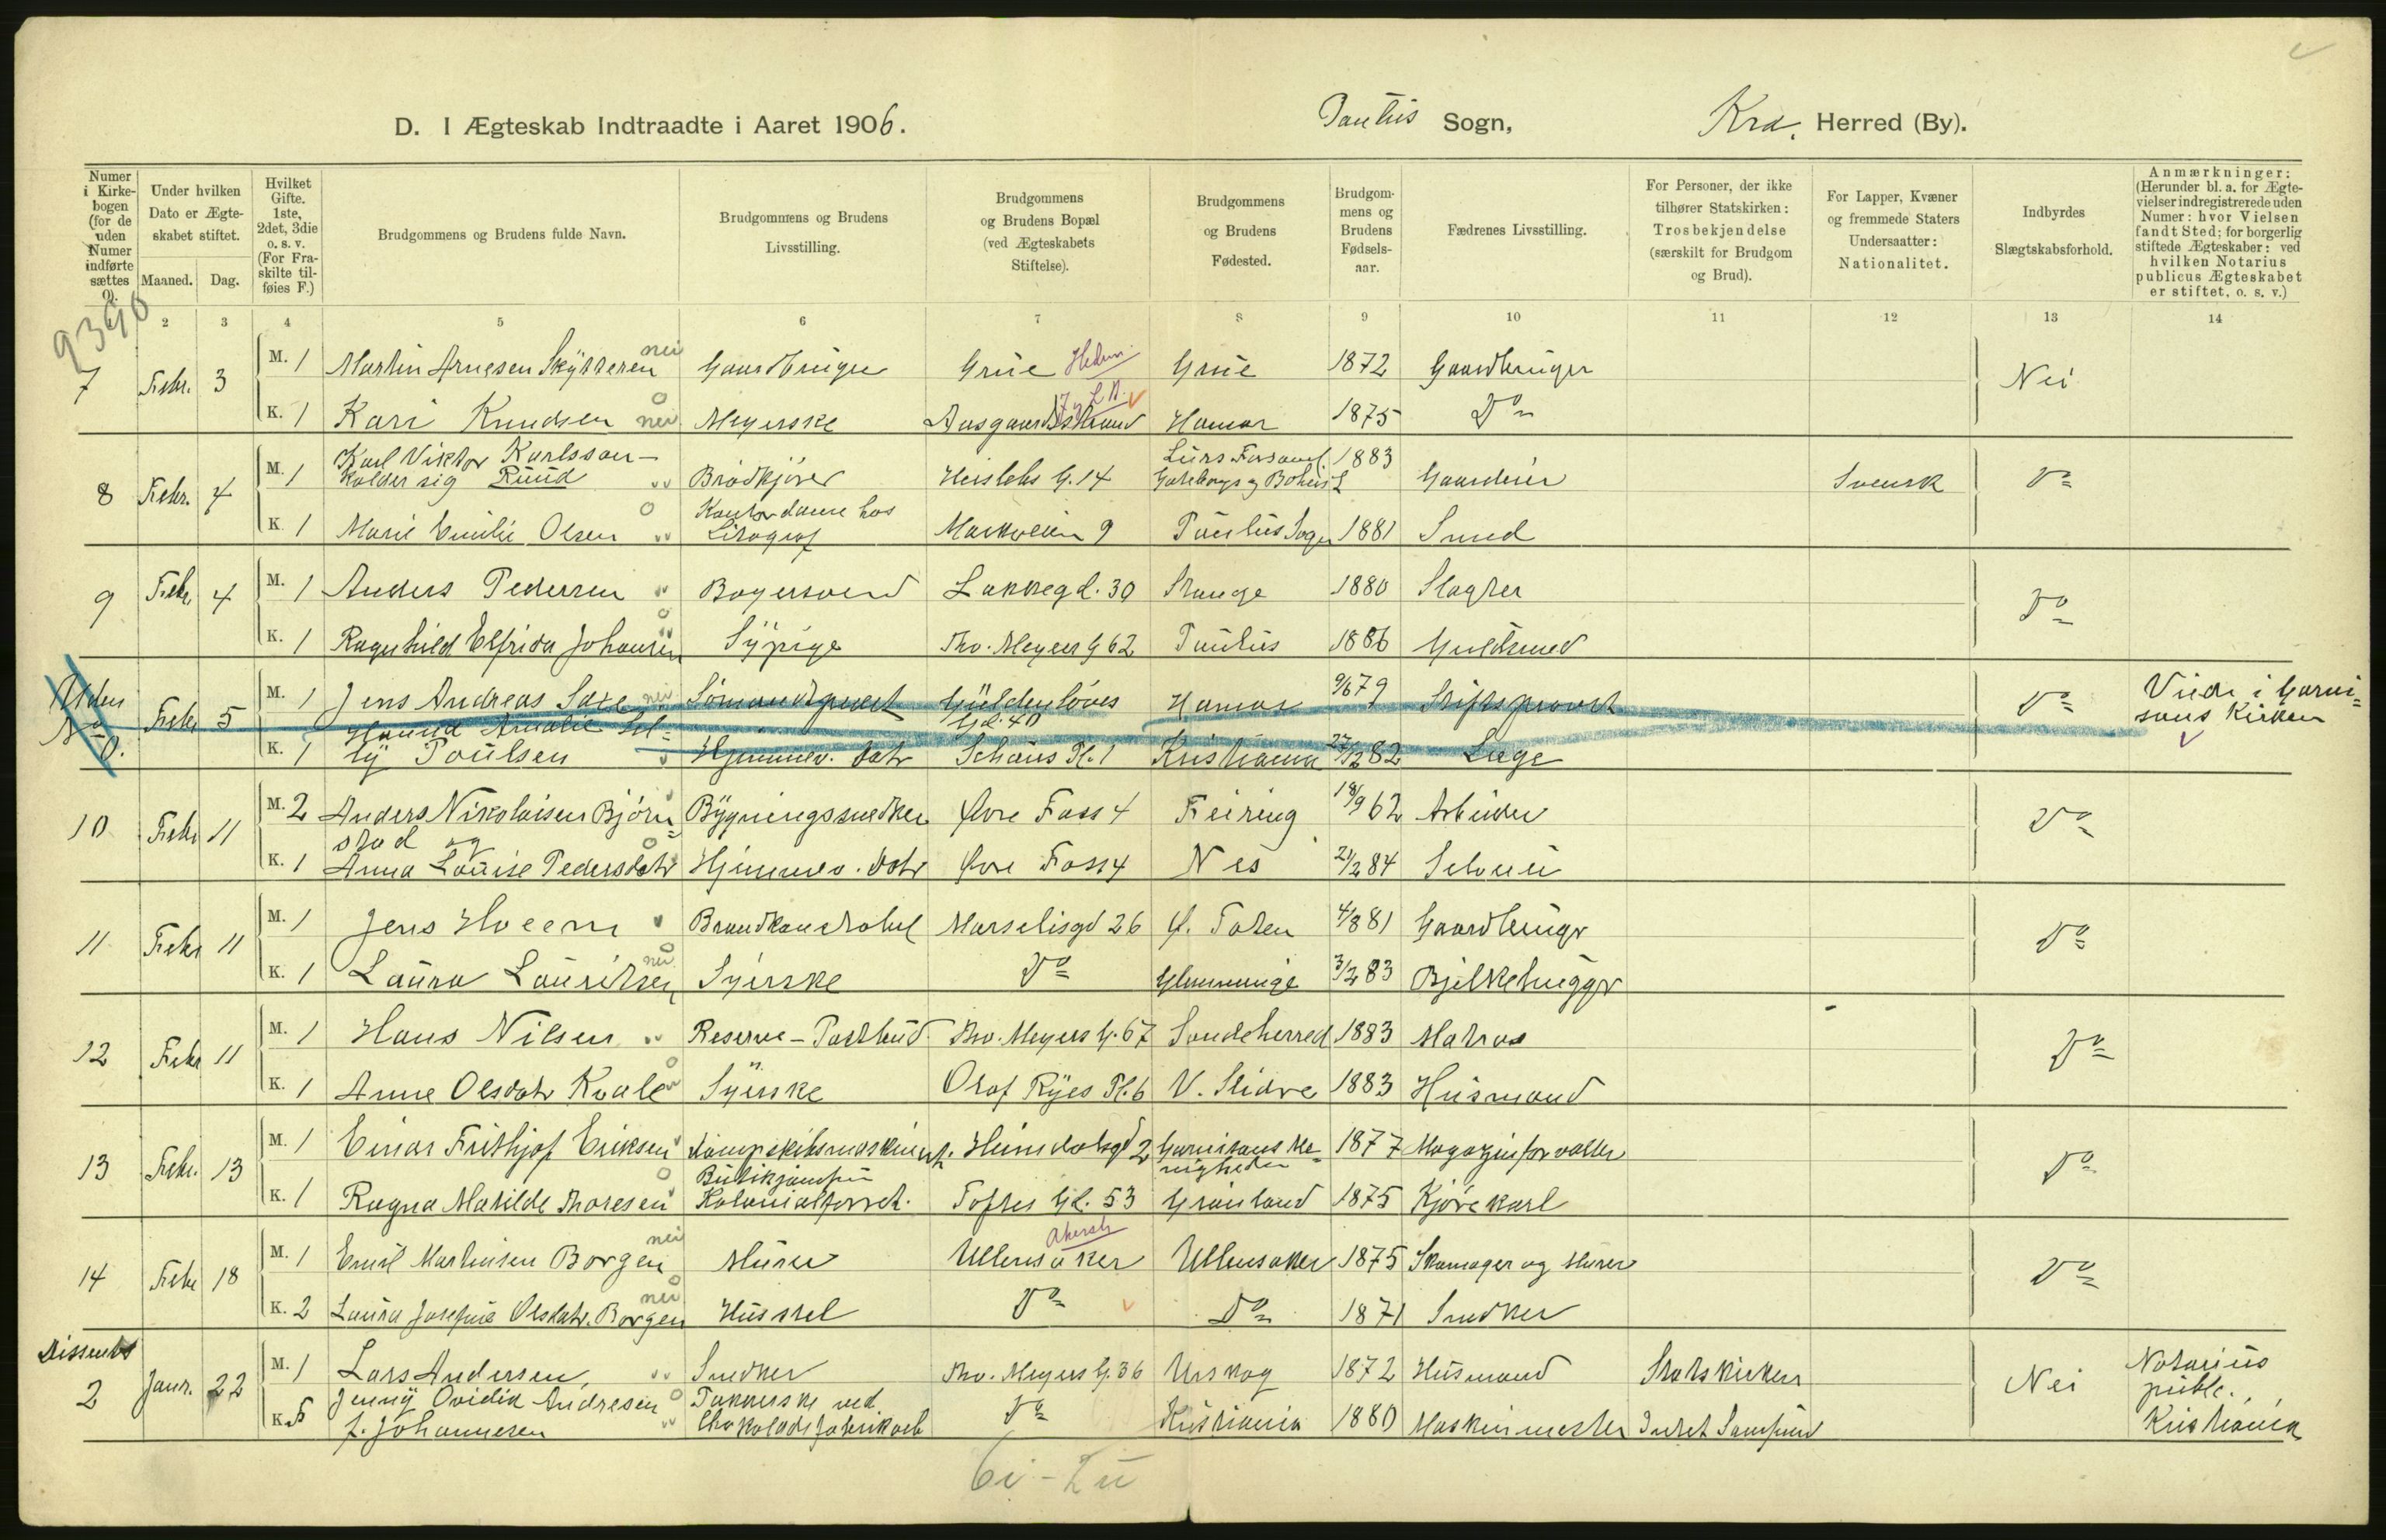 D. I Ægteskab Indtraadte i Aaret 1906. Paulus Sogn, Kra. Herred (By).
Numer i Kirkebogen (for de uden Numer indførte sættes 0).
Under hvilken Dato er Ægteskabet stiftet.
Maaned. Dag.
Hvilket Gifte. 1ste, 2det, 3die o. s. v. (For Fraskilte tilføies F.)
Brudgommens og Brudens fulde Navn.
Brudgommens og Brudens Livsstilling.
Brudgommens og Brudens Bopæl (ved Ægteskabets Stiftelse).
Brudgommens og Brudens Fødested.
Brudgommens og Brudens Fødselsaar.
Fædrenes Livsstilling.
For Personer, der ikke tilhører Statskirken: Trosbekjendelse (særskilt for Brudgom og Brud).
For Lapper, Kvæner og fremmede Staters Undersaatter: Nationalitet.
Indbyrdes Slægtskabsforhold.
Anmærkninger: (Herunder bl. a. for Ægtevielser indregistrerede uden Numer: hvor Vielsen fandt Sted; for borgerlig stiftede Ægteskaber: ved hvilken Notarius publicus Ægteskabet er stiftet, o. s. v.)
2 3 4 5 6 7 8 9 10 11 12 13 14
7 Febr. 3 M. 1 Martin Arnesen Skytteren nei Gaardbruger Grue Hedm. Grue 1872 Gaardbruger Nei
K. 1 Kari Knudsen nei Meyerske Aasgaardstrand Hamar 1875 Do
8 Febr. 4 M. 1 Karl Viktor Karlsson –
kalder sig Ruud Brødkjører Herslebs G. 14 Göteborgs og Bohus L 1883 Gaardeier Svensk Do
K. 1 Marie Emilie Olsen Kontordame hos
Litograf Markveien 9 Paulus Sogn 1881 Smed
9 Febr. 4 M. 1 Anders Pedersen Bogersvend Lakkegd. 30 Stange 1880 Slagter Do
K. 1 Ragnhild Elfrida Johansen Sypige Thv. Meyers G 62 Paulus 1886 Guldsmed
Uden No 0. Febr 5 M. 1 Jens Andreas Saxe nei Sømandsprest Gyldenløves
Gd. 40 Hamar 9/6 79 Stiftsprovst Do Viede i Garni=
sons Kirken
K. 1 Hanna Amalie Sel=
ly Poulsen Hjemmev. Datr Schous Pl. 1 Kristiania 27/2 82 Læge
10 Febr 11 M. 2 Anders Nikolaisen Bjørn=
stad og Bygningssnedker Øvre Foss 4 Feiring 18/9 62 Arbeider Do
K. 1 Anna Louise Pedersdatr Hjemmev. Datr Øvre Foss 4 Nes 21/2 84 Selveier
11 Febr 11 M. 1 Jens Hoeem Brandkonstabel Marselisgd 26 Ø. Toten 4/8 81 Gaardbruger Do
K. 1 Laura Lauritsen nei Syerske Do Glemminge 3/2 83 Bjelkehugger
12 Febr 11 M. 1 Hans Nilsen Reserve-Postbud Thv. Meyers G. 67 Sandeherred 1883 Matros Do
K. 1 Anne Olsdatr Kvale Syerske Olaf Ryes Pl. 6 V. Slidre 1883 Husmand
13 Febr. 13 M. 1 Einar Frithjof Eriksen Dampskibsmaskinist. Heimdalsgd 2 Garnisons Me=
nigheden 1877 Magazinforvalter Do
K. 1 Ragna Matilde Thoresen Butikjomfru
Kolonialforret. Toftes Gd. 53 Grønland 1875 Kjørekarl
14 Febr 18 M. 1 Emil Martinsen Borgen nei Murer Ullensaker Akersh Ullensaker 1875 Skomager og Murer Do
K. 2 Laura Josefine Olsdatr. Borgen nei Husstel Do Do 1871 Snedker
Dissenter
2 Janr. 22 M. 1 Lars Andersen, Snedker Thv. Meyers G. 36 Urskog 1872 Husmand Statskirken Nei Notarius
publc.
Kristiania
K. F Jenny Ovidia Andresen
f. Johannesen Pakkerske ved
Chokoladefabrikæb Do Kristiania 1880 Maskinmester Indret Samfund